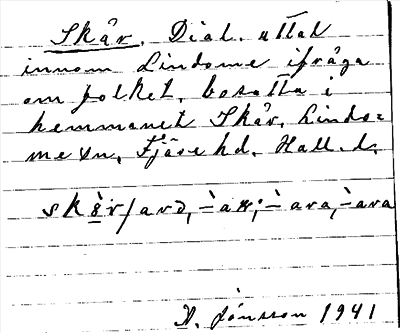 Skår. Dial. uttal
innom Lindome ifråga
om folket, bosatta i
hemmanet Skår, Lindo=
me sn, Fjäre hd. Hall. l.
A. Jönsson 1941